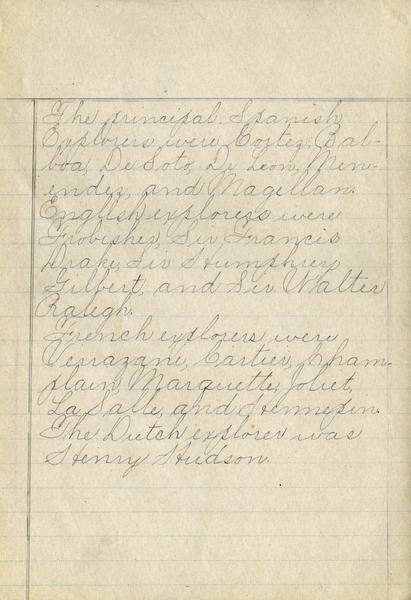 The principal Spanish
Explorers were Cortez, Bal-
boa, De Soto, De Leon, Men-
endez, and Magellan.
English explorers were
Frobisher, Sir Francis
Drake, Sir Humphrey
Gilbert, and Sir Walter
Ralegh.
French explorers were
Verrazani, Cartier, Cham-
plain, Marquette, Joliet,
La Salle, and Hennepin.
The Dutch explorer was
Henry Hudson.